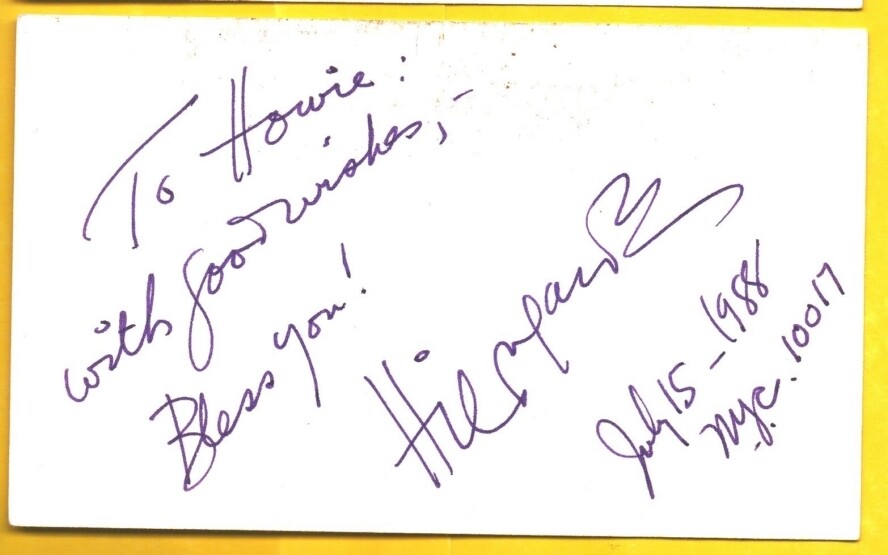 To Howie:
with good wishes,-
Bless you!
Hildegarde
July 15-1988
N.Y.C. 10017